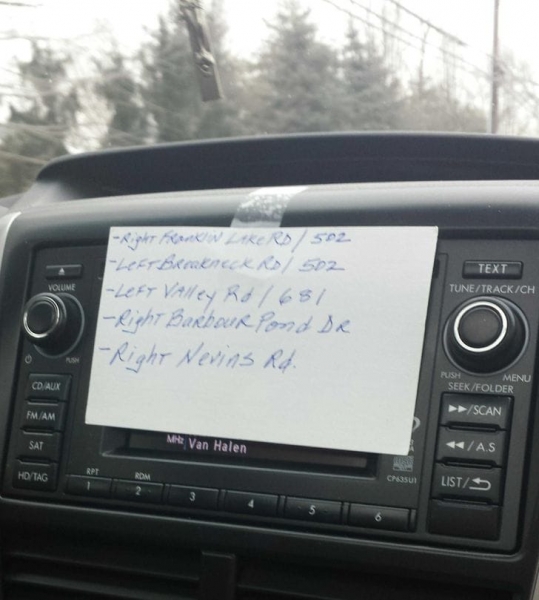 -Right Franklin Lake RD / 502
-Left Breakneck RD / 502
-Left Valley Rd / 681
-Right Barbour Pond DR
-Right Nevins Rd.
TEXT
VOLUME
TUNE/TRACK/CH
PUSH
PUSH MENU
SEEK/FOLDER
CD/AUX
▶▶/SCAN
FM/AM
◀◀/A.S
SAT
MHz Van Halen
HD/TAG
LIST/
CP635U1
RPT RDM
1 2 3 4 5 6